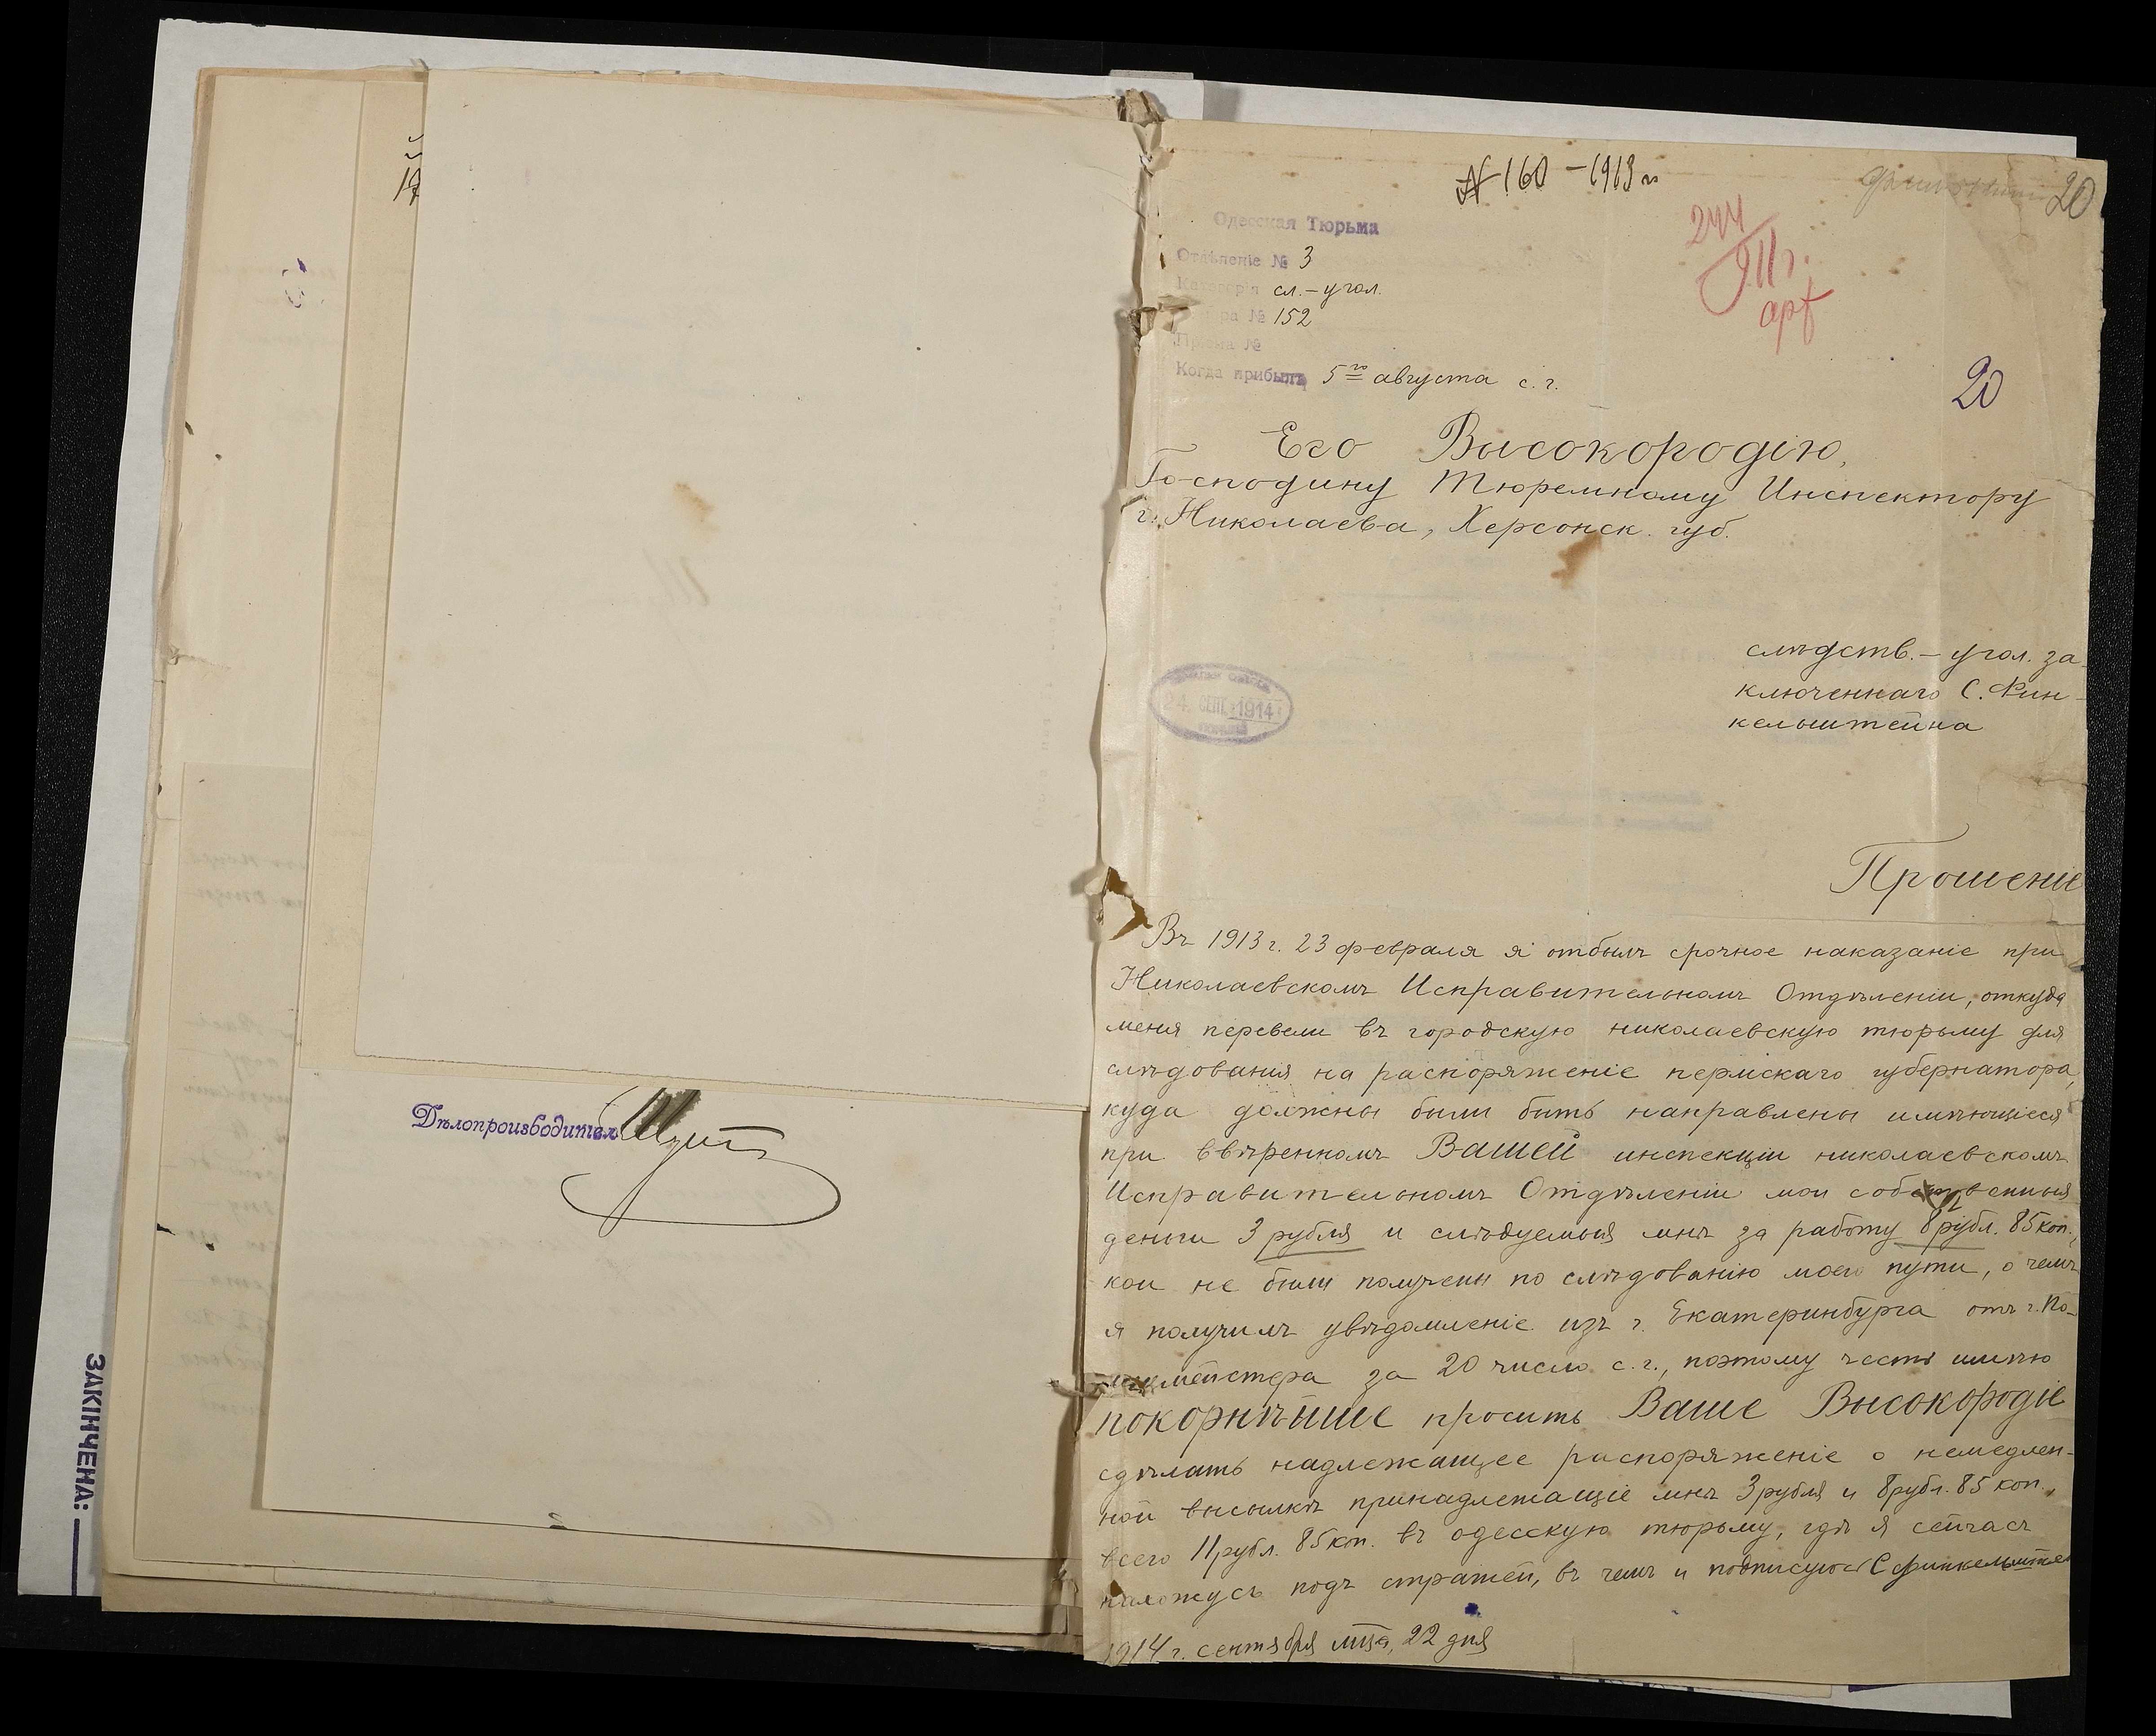 19
Дѣлопроизводитель
№ 160 – 1913 г.
20
244
911 г.
арf
Одесская Тюрьма
Отдѣленіе № 3
Категорія сл.-угол.
Камера № 152
Пріема №
Когда прибылъ 5го августа с. г.
20
Его Высокородію,
Господину Тюремному Инспектору
г. Николаева, Херсонск. губ.
слѣдств.-угол. за-
ключеннаго С. Фин-
кельштейна
24 СЕНТ. 1914
Прошеніе
Въ 1913 г. 23 февраля я отбылъ срочное наказаніе при
Николаевскомъ Исправительномъ Отдѣленіи, откуда
меня перевели въ городскую николаевскую тюрьму для
слѣдованія на распоряженіе пермскаго губернатора,
куда должны были быть направлены имѣющіеся
при ввѣренномъ Вашей инспекціи николаевскомъ
Исправительномъ Отдѣленіи мои собственныя
деньги 3 рубля и слѣдуемыя мнѣ за работу 8 рубл. 85 коп.,
кои не были получены по слѣдованію моего пути, о чемъ
я получилъ увѣдомленіе изъ г. Екатеринбурга отъ г. По-
лицмейстера за 20 число с. г., поэтому честь имѣю
покорнѣйше просить Ваше Высокородіе
сдѣлать надлежащее распоряженіе о немедлен-
ной высылкѣ принадлежащіе мнѣ 3 рубля и 8 рубл. 85 коп.,
всего 11 рубл. 85 коп. въ одесскую тюрьму, гдѣ я сейчасъ
нахожусь подъ стражей, въ чемъ и подписуюсь С Финкельштей
1914 г. сентября мца, 22 дня
ЗАКІНЧЕНА: